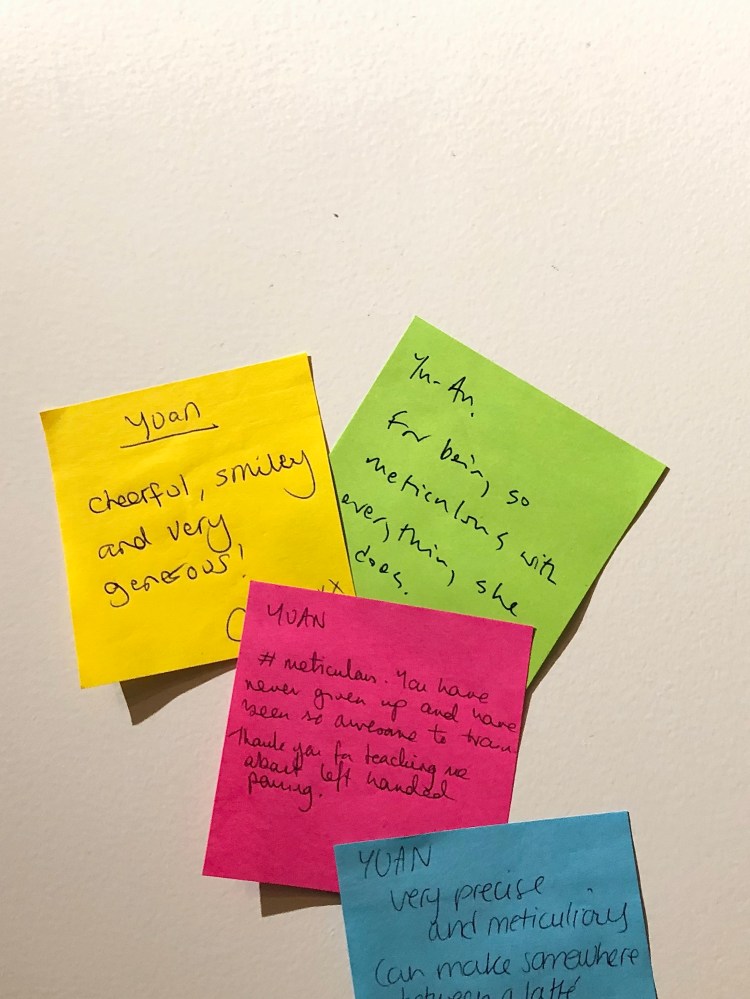 Yuan
cheerful, smiley
and very
generous!
Yu-An.
For being so
meticulous with
everything she
does.
YUAN
# meticulous. You have
never given up and have
been so awesome to train
Thank you for teaching me
about left handed
pouring.
YUAN
very precise
and meticulious
Can make somewhere
between a latté